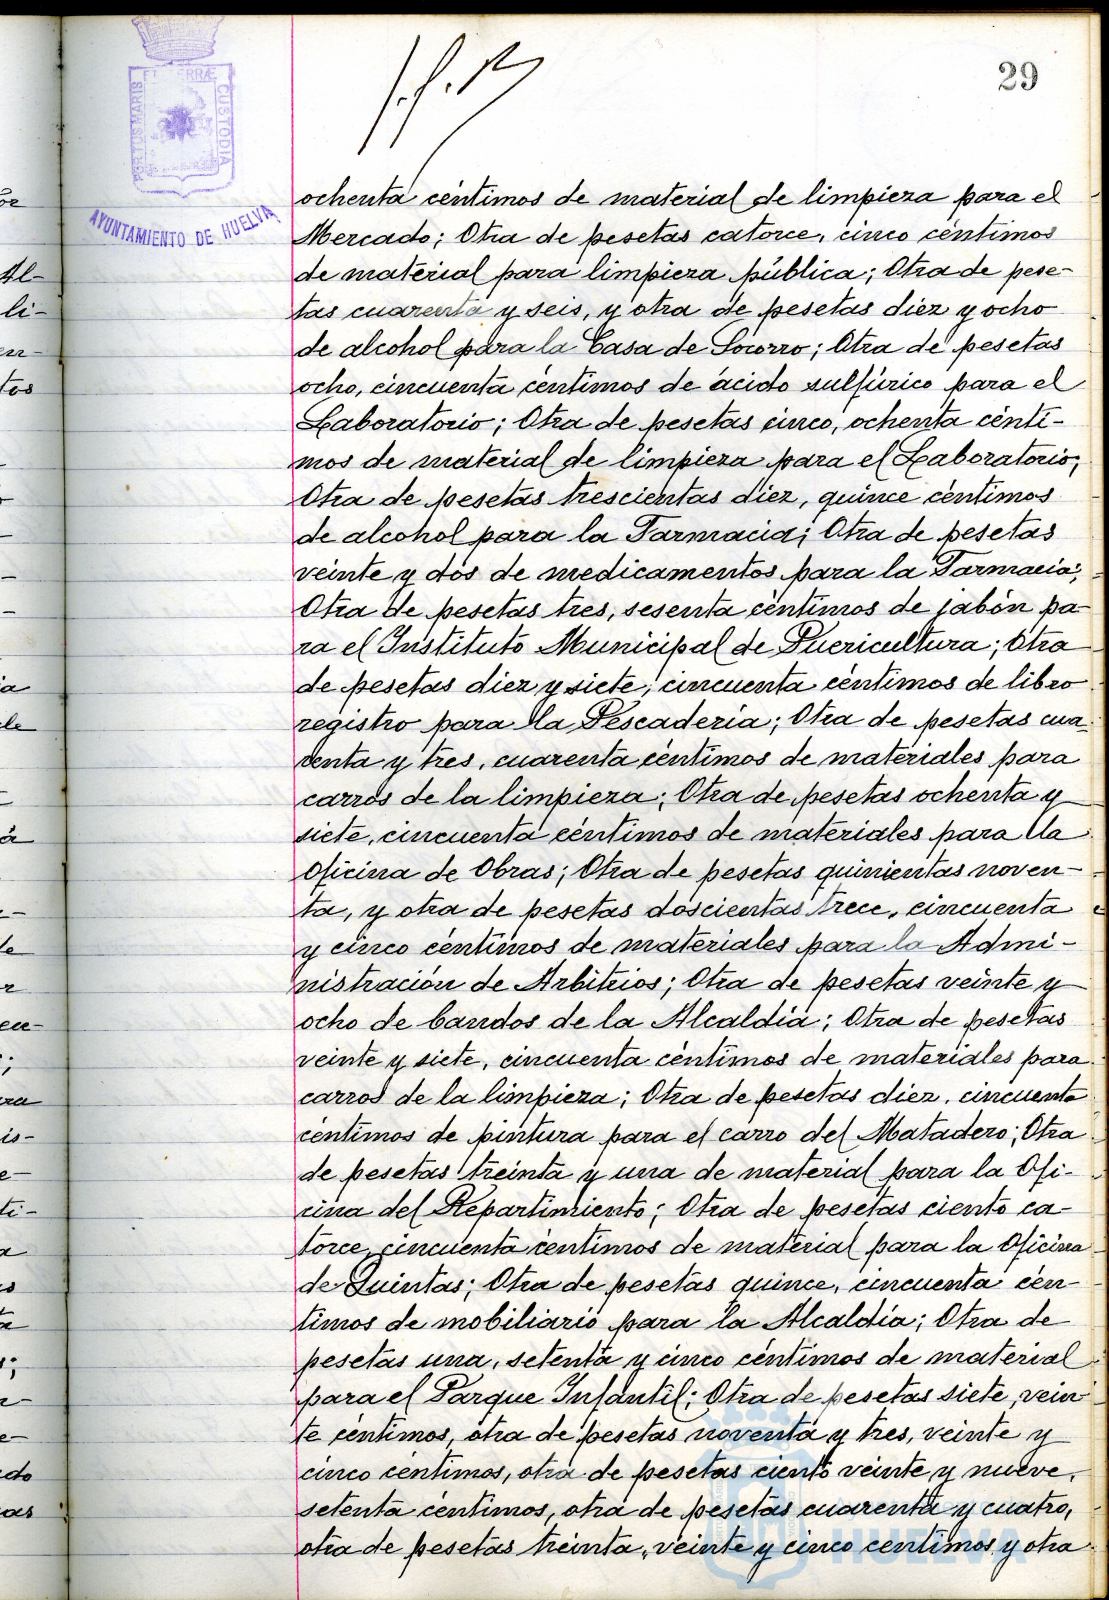 29
PORTUS MARIS ET TERRÆ CUSTODIA
AYUNTAMIENTO DE HUELVA
ochenta céntimos de material de limpieza para el
Mercado; Otra de pesetas catorce, cinco céntimos
de material para limpieza pública; Otra de pese-
tas cuarenta y seis, y otra de pesetas diez y ocho
de alcohol para la Casa de Socorro; Otra de pesetas
ocho, cincuenta céntimos de ácido sulfúrico para el
Laboratorio; Otra de pesetas cinco, ochenta cénti-
mos de material de limpieza para el Laboratorio;
Otra de pesetas trescientas diez, quince céntimos
de alcohol para la Farmacia; Otra de pesetas
veinte y dos de medicamentos para la Farmacia;
Otra de pesetas tres, sesenta céntimos de jabón pa-
ra el Instituto Municipal de Puericultura; Otra
de pesetas diez y siete, cincuenta céntimos de libro
registro para la Pescadería; Otra de pesetas cua-
renta y tres, cuarenta céntimos de materiales para
carros de la limpieza; Otra de pesetas ochenta y
siete, cincuenta céntimos de materiales para la
Oficina de Obras; Otra de pesetas quinientas noven-
ta, y otra de pesetas doscientas trece, cincuenta
y cinco céntimos de materiales para la Admi-
nistración de Arbitrios; Otra de pesetas veinte y
ocho de bandos de la Alcaldía; Otra de pesetas
veinte y siete, cincuenta céntimos de materiales para
carros de la limpieza; Otra de pesetas diez, cincuenta
céntimos de pintura para el carro del Matadero; Otra
de pesetas treinta y una de material para la Ofi-
cina del Repartimiento; Otra de pesetas ciento ca-
torce, cincuenta céntimos de material para la Oficina
de Quintas; Otra de pesetas quince, cincuenta cén-
timos de mobiliario para la Alcaldía; Otra de
pesetas una, setenta y cinco céntimos de material
para el Parque Infantil; Otra de pesetas siete, vein-
te céntimos, otra de pesetas noventa y tres, veinte y
cinco céntimos, otra de pesetas ciento veinte y nueve,
setenta céntimos, otra de pesetas cuarenta y cuatro,
otra de pesetas treinta, veinte y cinco centimos y otra
HUELVA